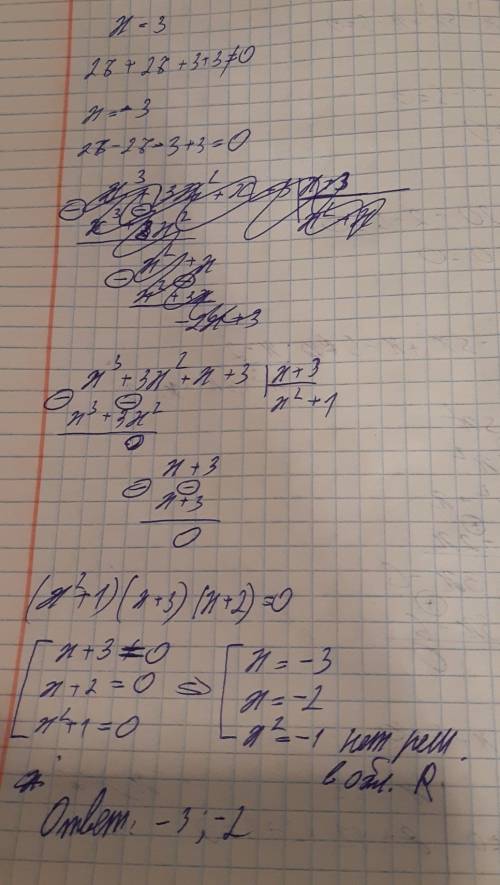 x = 3
27 + 27 + 3 + 3 ≠ 0
x = -3
27 - 27 - 3 + 3 = 0
x³ + 3x² + x + 3 | x + 3
x³ + 3x² | x² + 1
0
x + 3
x + 3
0
(x² + 1)(x + 3)(x + 2) = 0
x + 3 = 0 ⇔ x = -3
x + 2 = 0 x = -2
x² + 1 = 0 x² = -1 нет реш.
в обл. R.
Ответ: -3; -2